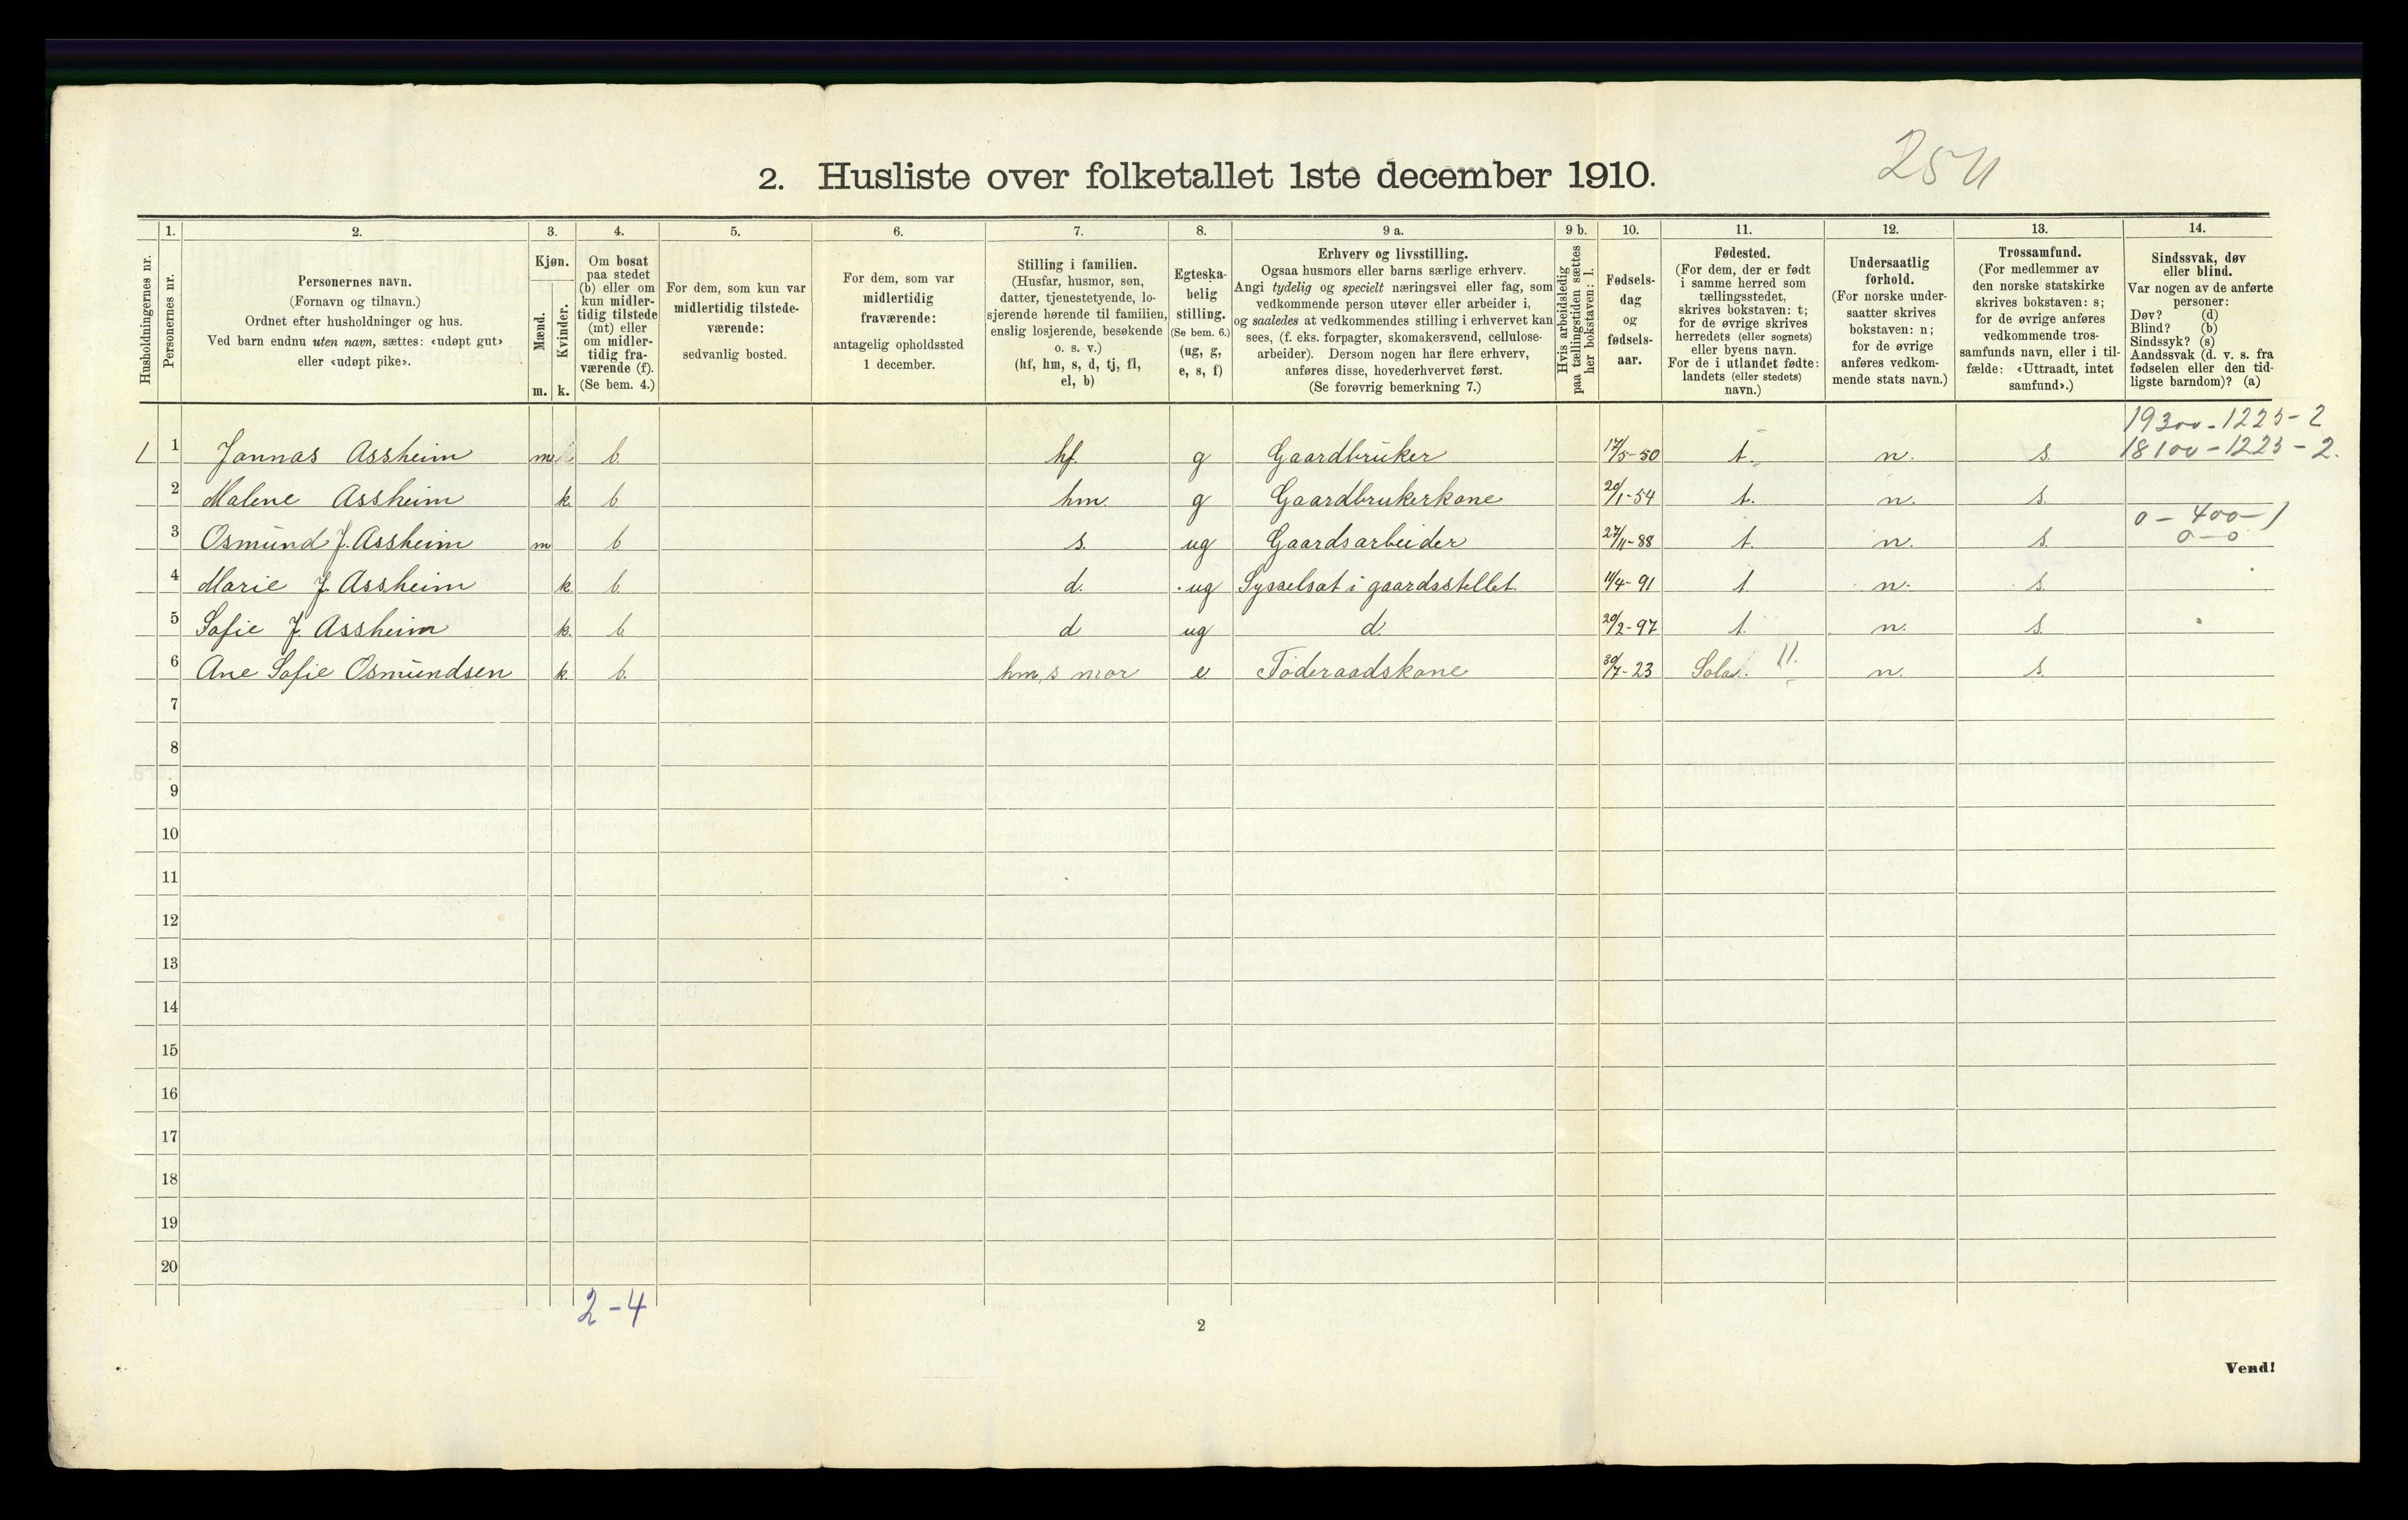 2. Husliste over folketallet 1ste december 1910.
Husholdningernes nr.
1. Personernes nr.
2. Personernes navn.
(Fornavn og tilnavn.)
Ordnet efter husholdninger og hus.
Ved barn endnu uten navn, sættes: «udøpt gut»
eller «udøpt pike».
3. Kjøn.
Mænd. m.
Kvinder. k.
4. Om bosat
paa stedet
(b) eller om
kun midler-
tidig tilstede
(mt) eller
om midler-
tidig fra-
værende (f).
(Se bem. 4.)
5. For dem, som kun var
midlertidig tilstede-
værende:
sedvanlig bosted.
6. For dem, som var
midlertidig
fraværende:
antagelig opholdssted
1 december.
7. Stilling i familien.
(Husfar, husmor, søn,
datter, tjenestetyende, lo-
sjerende hørende til familien,
enslig losjerende, besøkende
o. s. v.)
(hf, hm, s, d, tj, fl,
el, b)
8. Egteska-
belig
stilling.
(Se bem. 6.)
(ug, g,
e, s, f)
9 a. Erhverv og livsstilling.
Ogsaa husmors eller barns særlige erhverv.
Angi tydelig og specielt næringsvei eller fag, som
vedkommende person utøver eller arbeider i,
og saaledes at vedkommendes stilling i erhvervet kan
sees, (f. eks. forpagter, skomakersvend, cellulose-
arbeider). Dersom nogen har flere erhverv,
anføres disse, hovederhvervet først.
(Se forøvrig bemerkning 7.)
9 b. Hvis arbeidsledig
paa tællingstiden sættes
her bokstaven: l.
10. Fødsels-
dag
og
fødsels-
aar.
11. Fødested.
(For dem, der er født
i samme herred som
tællingsstedet,
skrives bokstaven: t;
for de øvrige skrives
herredets (eller sognets)
eller byens navn.
For de i utlandet fødte:
landets (eller stedets)
navn.)
12. Undersaatlig
forhold.
(For norske under-
saatter skrives
bokstaven: n;
for de øvrige
anføres vedkom-
mende stats navn.)
13. Trossamfund.
(For medlemmer av
den norske statskirke
skrives bokstaven: s;
for de øvrige anføres
vedkommende tros-
samfunds navn, eller i til-
fælde: «Uttraadt, intet
samfund».)
14. Sindssvak, døv
eller blind.
Var nogen av de anførte
personer:
Døv? (d)
Blind? (b)
Sindssyk? (s)
Aandssvak (d. v. s. fra
fødselen eller den tid-
ligste barndom)? (a)
19300 - 1225 - 2
1 1 Jonnas Assheim m b. hf. g Gaardbruker 17/5-50 t. n. s. 18100 - 1225 - 2.
2 Malene Assheim k. b. hm. g Gaardbrukerkone 20/1-54 t. n. s.
0 - 400 - 1
3 Osmund J. Assheim m b s. ug Gaardsarbeider 27/11-88 t. n. s. 0 - 0
4 Marie J. Assheim k. b. d. ug Sysselsat i gaardsstellet. 11/4-91 t. n. s.
5 Sofie J. Assheim k. b. d ug d. 20/2-97 t. n. s.
6 Ane Sofie Osmundsen k. b. hm,s mor e Föderaadskone 30/7-23 Sola. 11. n. s.
7
8
9
10
11
12
13
14
15
16
17
18
19
20
2-4
2
Vend!